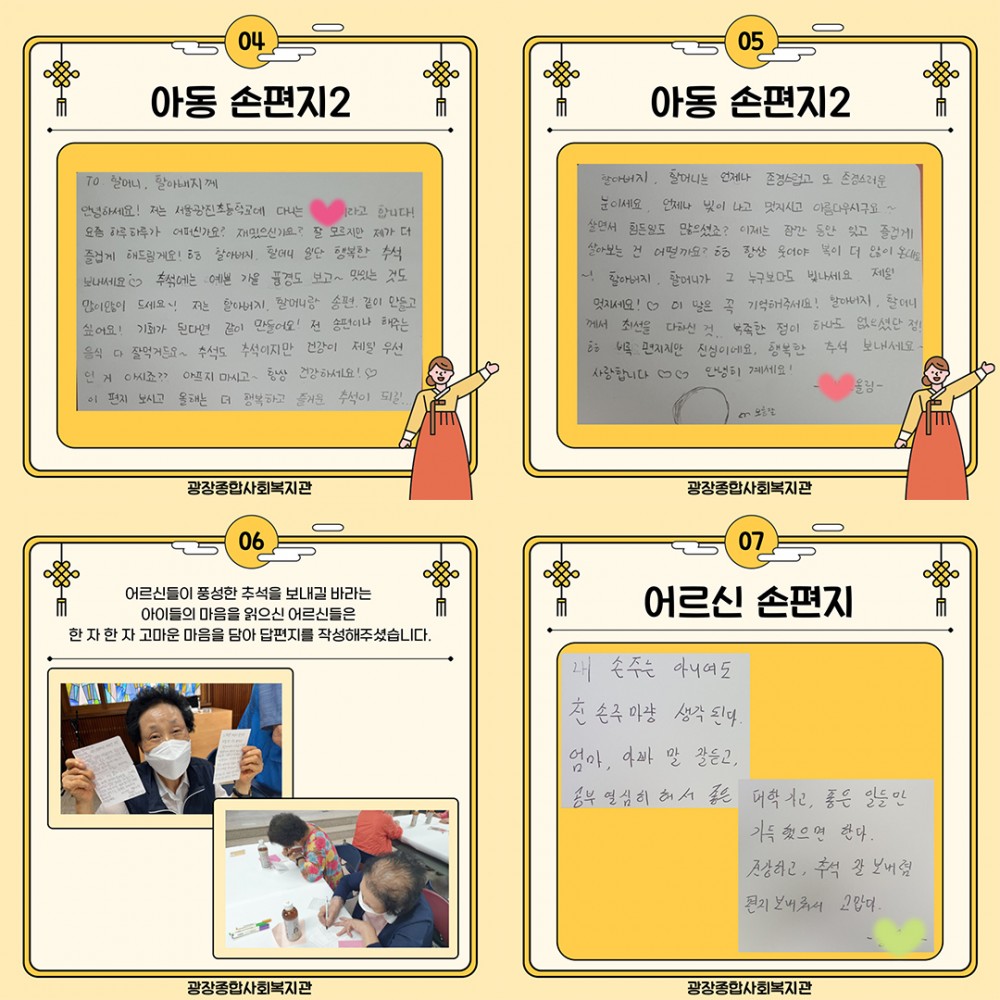 04
아동 손편지2
TO 할머니, 할아버지께
안녕하세요! 저는 서울광진초등학교에 다니는 라고 합니다!
요즘 하루하루가 어떠신가요? 재밌으신가요? 잘 모르지만 제가 더
즐겁게 해드릴게요! 할아버지, 할머니 일단 행복한 추석
보내세요♡ 추석에는 예쁜 가을 풍경도 보고~ 맛있는 것도
많이많이 드세요~! 저는 할아버지, 할머니랑 송편 같이 만들고
싶어요! 기회가 된다면 같이 만들어요! 전 송편이나 해주는
음식 다 잘먹거든요~ 추석도 추석이지만 건강이 제일 우선
인 게 아시죠?? 아프지 마시고~ 항상 건강하세요!♡
이 편지 보시고 올해는 더 행복하고 즐거운 추석이 되길!..
광장종합사회복지관
05
아동 손편지2
할아버지, 할머니는 언제나 존경스럽고 또 존경스러운
분이세요, 언제나 빛이 나고 멋지시고 아름다우시구요~
살면서 힘든일도 많으셨죠? 이제는 잠깐 동안 잊고 즐겁게
살아보는 건 어떨까요? 항상 웃어야 복이 더 많이 온대요
~! 할아버지, 할머니가 그 누구보다도 빛나세요 제일
멋지세요!♡ 이 말은 꼭 기억해주세요! 할아버지, 할머니
께서 최선을 다하신 것, 부족한 점이 하나도 없으셨단 점!
비록 편지지만 진심이에요, 행복한 추석 보내세요~
사랑합니다 ♡♡ 안녕히 계세요!
올림-
보름달
광장종합사회복지관
06
어르신들이 풍성한 추석을 보내길 바라는
아이들의 마음을 읽으신 어르신들은
한 자 한 자 고마운 마음을 담아 답편지를 작성해주셨습니다.
광장종합사회복지관
07
어르신 손편지
내 손주는 아니여도
친 손주 마냥 생각된다.
엄마, 아빠 말 잘듣고,
공부 열심히 해서 좋은
대학가고, 좋은 일들만
가득 했으면 한다.
건강하고, 추석 잘 보내렴
편지 보내줘서 고맙다.
광장종합사회복지관